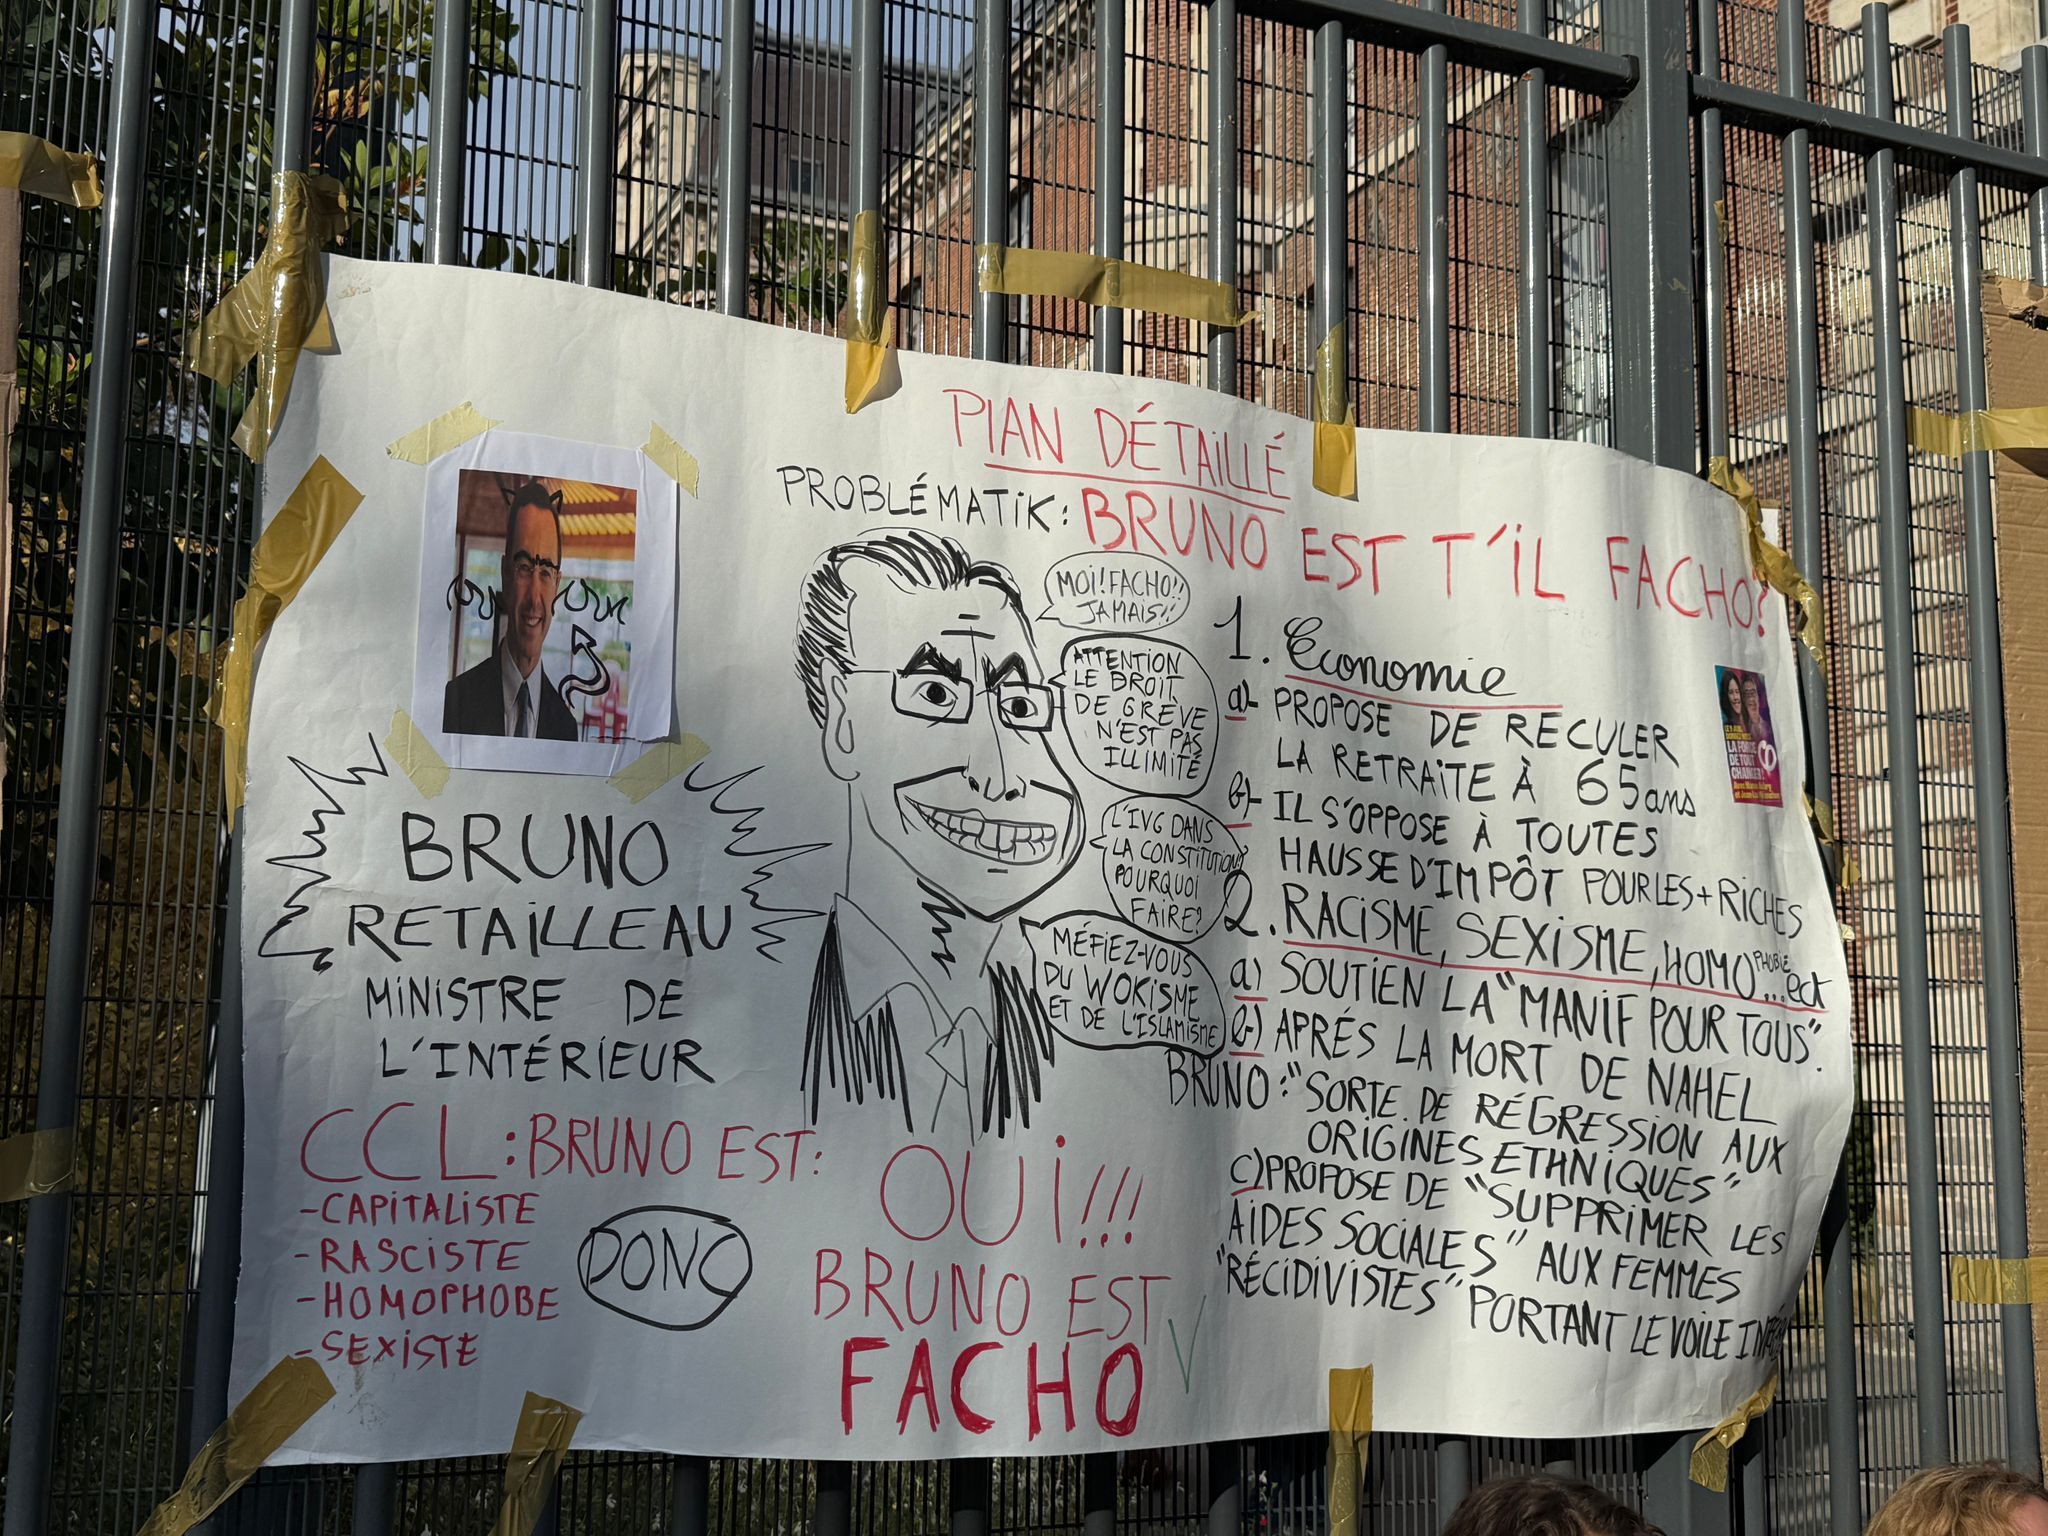 PLAN DÉTAILLÉ
PROBLÉMATIK: BRUNO EST T'IL FACHO?
BRUNO
RETAILLEAU
MINISTRE DE
L'INTÉRIEUR
CCL: BRUNO EST:
-CAPITALISTE
-RASCISTE
-HOMOPHOBE
-SEXISTE
DONC
MOI! FACHO!!
JAMAIS!!
ATTENTION
LE DROIT
DE GRÈVE
N'EST PAS
ILLIMITÉ
L'IVG DANS
LA CONSTITUTION?
POURQUOI
FAIRE?
MÉFIEZ-VOUS
DU WOKISME
ET DE L'ISLAMISME
OUI!!!
BRUNO EST
FACHO
1. Economie
a)- PROPOSE DE RECULER
LA RETRAITE À 65 ans
b)- IL S'OPPOSE À TOUTES
HAUSSE D'IMPÔT POUR LES + RICHES
2. RACISME, SEXISME, HOMOPHOBIE...ect
a) SOUTIEN LA "MANIF POUR TOUS".
b) APRÉS LA MORT DE NAHEL
BRUNO: "SORTE DE RÉGRESSION AUX
ORIGINES ETHNIQUES"
c) PROPOSE DE "SUPPRIMER LES
AIDES SOCIALES" AUX FEMMES
"RÉCIDIVISTES" PORTANT LE VOILE
LA FORCE
DE TOUT
CHANGER